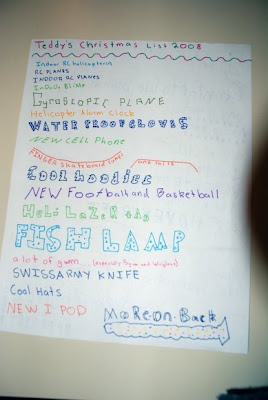 Teddy's Christmas List 2008
Indoor RC helicopters
RC PLANES
INDOOR RC PLANES
Gyroscopic PLANE
Helicopter Alarm Clock
WATER PROOF GLOVES
NEW CELL PHONE
FINGER skateboard ramps and rails
Cool hoodies
NEW Football and Basketball
Heli LaZeR tag
FISH LAMP
a lot of games
SWISSARMY KNIFE
Cool Hats
NEW I POD
More on Back